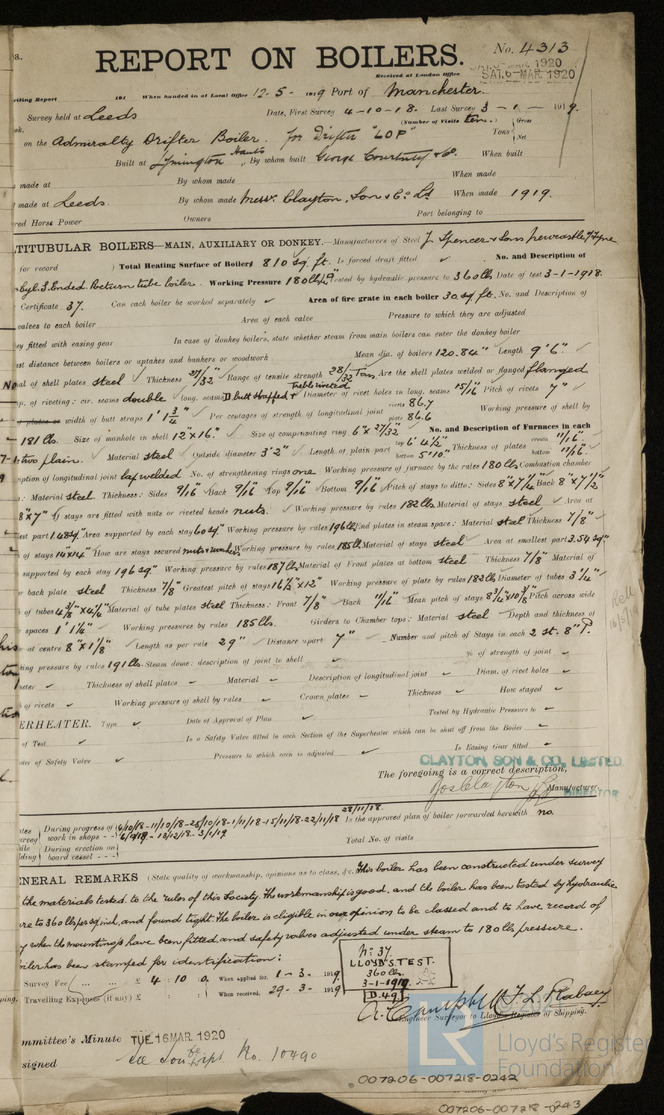 REPORT ON BOILERS.
No. 4313
Received at London Office
SAT. 6-MAR 1920
Writing Report 191 When handed in at Local Office 12-5-1919 Port of Manchester.
Survey held at Leeds Date, First Survey 4-10-18. Last Survey 3-1-1919.
(Number of Visits ten.) Gross
on the Admiralty Drifter Boiler. for Drifter "LOP" Tons Net
Built at Lymington Hants. By whom built George Courtney & Co. When built
made at By whom made When made
made at Leeds. By whom made Messrs. Clayton, Son & Co. Ld When made 1919.
Horse Power Owners Port belonging to
TITUBULAR BOILERS—MAIN, AUXILIARY OR DONKEY.—Manufacturers of Steel J. Spencer & Sons Newcastle/Tyne
for record ) Total Heating Surface of Boilers 810 sq. ft. Is forced draft fitted No. and Description of
Cyl. S. Ended. Return tube boiler. Working Pressure 180 lb/□" Tested by hydraulic pressure to 360 lb Date of test 3-1-1918.
Certificate 37. Can each boiler be worked separately Area of fire grate in each boiler 30 sq. ft. No. and Description of
valves to each boiler Area of each valve Pressure to which they are adjusted
fitted with easing gear In case of donkey boilers, state whether steam from main boilers can enter the donkey boiler
distance between boilers or uptakes and bunkers or woodwork Mean dia. of boilers 120.84" Length 9' 6"
of shell plates steel Thickness 27/32" Range of tensile strength 28/32 Tons Are the shell plates welded or flanged flanged
of riveting: cir. seams double long. seams D butt strapped & Treble riveted Diameter of rivet holes in long. seams 15/16 Pitch of rivets 7"
width of butt straps 1' 1 3/4" Per centages of strength of longitudinal joint rivets 86.7 plate 86.6 Working pressure of shell by
181 lbs. Size of manhole in shell 12"x16" Size of compensating ring 6"x27/32" No. and Description of Furnaces in each
two plain. Material steel Outside diameter 3' 2" Length of plain part top 6' 4 1/2" bottom 5' 10" Thickness of plates crown 11/16" bottom 11/16"
of longitudinal joint lap welded No. of strengthening rings one Working pressure of furnace by the rules 180 lbs Combustion chamber
: Material steel Thickness: Sides 9/16" Back 9/16" Top 9/16" Bottom 9/16" Pitch of stays to ditto: Sides 8"x7 1/4" Back 8"x7 1/2"
8"x7" If stays are fitted with nuts or riveted heads nuts. Working pressure by rules 182 lbs Material of stays steel Area at
part 1.48 sq" Area supported by each stay 60 sq" Working pressure by rules 196 lb End plates in steam space: Material steel Thickness 7/8"
of stays 14"x14" How are stays secured nuts & washers Working pressure by rules 185 lb Material of stays steel Area at smallest part 3.54 sq"
supported by each stay 196 sq" Working pressure by rules 187 lb Material of Front plates at bottom steel Thickness 7/8" Material of
back plate steel Thickness 7/8" Greatest pitch of stays 16 1/2"x12" Working pressure of plate by rules 182 lb Diameter of tubes 3 1/4"
of tubes 4 3/8"x4 1/2" Material of tube plates steel Thickness: Front 7/8" Back 11/16" Mean pitch of stays 8 3/4"x10 3/8" Pitch across wide
spaces 1' 1 1/4" Working pressures by rules 185 lbs. Girders to Chamber tops: Material steel Depth and thickness of
at centre 8"x1 1/8" Length as per rule 29" Distance apart 7" Number and pitch of Stays in each 2 st. 8" P.
pressure by rules 191 lbs. Steam dome: description of joint to shell % of strength of joint
Thickness of shell plates Material Description of longitudinal joint Diam. of rivet holes
of rivets Working pressure of shell by rules Crown plates Thickness How stayed
ERHEATER. Type Date of Approval of Plan Tested by Hydraulic Pressure to
of Test Is a Safety Valve fitted to each Section of the Superheater which can be shut off from the Boiler
of Safety Valve Pressure to which each is adjusted Is Easing Gear fitted
CLAYTON, SON & CO., LIMITED.
The foregoing is a correct description,
Jos Clayton Manufacturer.
DIRECTOR
During progress of work in shops 4/10/18-11/10/18-25/10/18-1/11/18-15/11/18-22/11/18 28/11/18 Is the approved plan of boiler forwarded herewith no.
13/12/18-3/1/19
During erection on board vessel Total No. of visits
GENERAL REMARKS (State quality of workmanship, opinions as to class, &c. This boiler has been constructed under survey
the materials tested to the rules of this Society. The workmanship is good, and the boiler has been tested by hydraulic
to 360 lbs per sq inch, and found tight. The boiler is eligible in our opinion to be classed and to have record of
when the mountings have been fitted, and safety valves adjusted under steam to 180 lbs pressure.
boiler has been stamped for identification:
No. 37.
LLOYD'S TEST.
360 lbs.
3-1-1919
D.49
Survey Fee £ 4 : 10 : 0. When applied for, 1-3-1919
Travelling Expenses (if any) £ When received, 29-3-1919
A. Campbell
Engineer Surveyor to Lloyd's Register of Shipping.
Committee's Minute TUE. 16 MAR. 1920
signed See Rpt No. 10490
LR Lloyd's Register Foundation
007206-007218-0242
007206-007218-0243